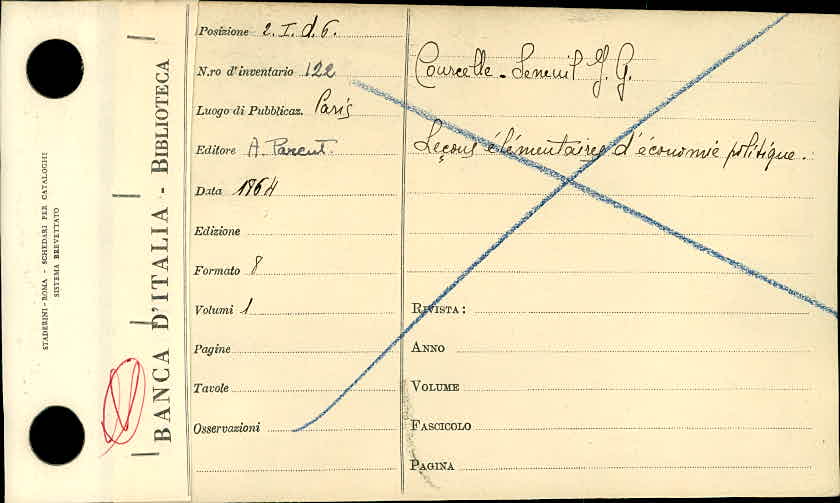 STADERINI - ROMA - SCHEDARI PER CATALOGHI
SISTEMA BREVETTATO
BANCA D'ITALIA - BIBLIOTECA
Posizione 2. I. d. 6.
N.ro d'inventario 122
Luogo di Pubblicaz. Paris
Editore A. Parent.
Data 1864
Edizione
Formato 8
Volumi 1
Pagine
Tavole
Osservazioni
Courcelle - Seneuil J. G.
Leçons élémentaires d'économie politique.
RIVISTA:
ANNO
VOLUME
FASCICOLO
PAGINA